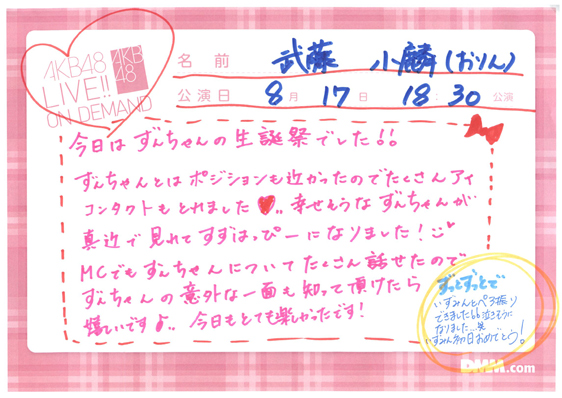 AKB48
LIVE!!
ON DEMAND
AKB
48
名前 武藤 小麟(おりん)
公演日 8月 17日 18:30 公演
今日は ずんちゃんの生誕祭でした!!
ずんちゃんとは ポジションも近かったのでたくさんアイ
コンタクトもとれました♥.. 幸せそうな ずんちゃんが
真近で見れて すずはっぴーになりました!
MCでも ずんちゃんについて たくさん 話せたので
ずんちゃんの意外な一面も知って頂けたら
嬉しいです♪.. 今日もとても楽しかったです!
ずっとずっとで
いずみんとペア振り
できました 泣きそうに
なりました..笑
いずみん初日おめでとう!
DMM.com